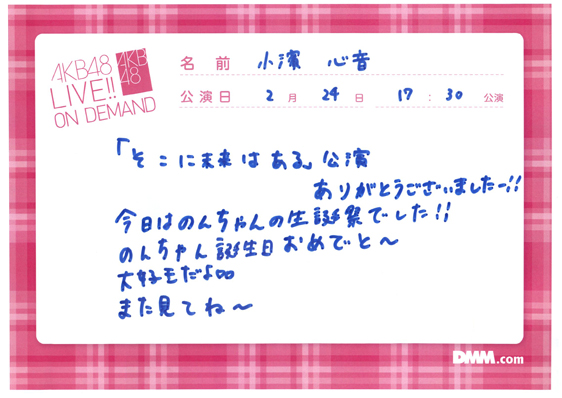 AKB48
LIVE!!
ON DEMAND
AKB
48
名前 小濱 心音
公演日 2月 24日 17:30 公演
「そこに未来はある」公演
ありがとうございましたー!!
今日はのんちゃんの生誕祭でした!!
のんちゃん誕生日おめでと〜
大好きだよ∞
また見てね〜
DMM.com